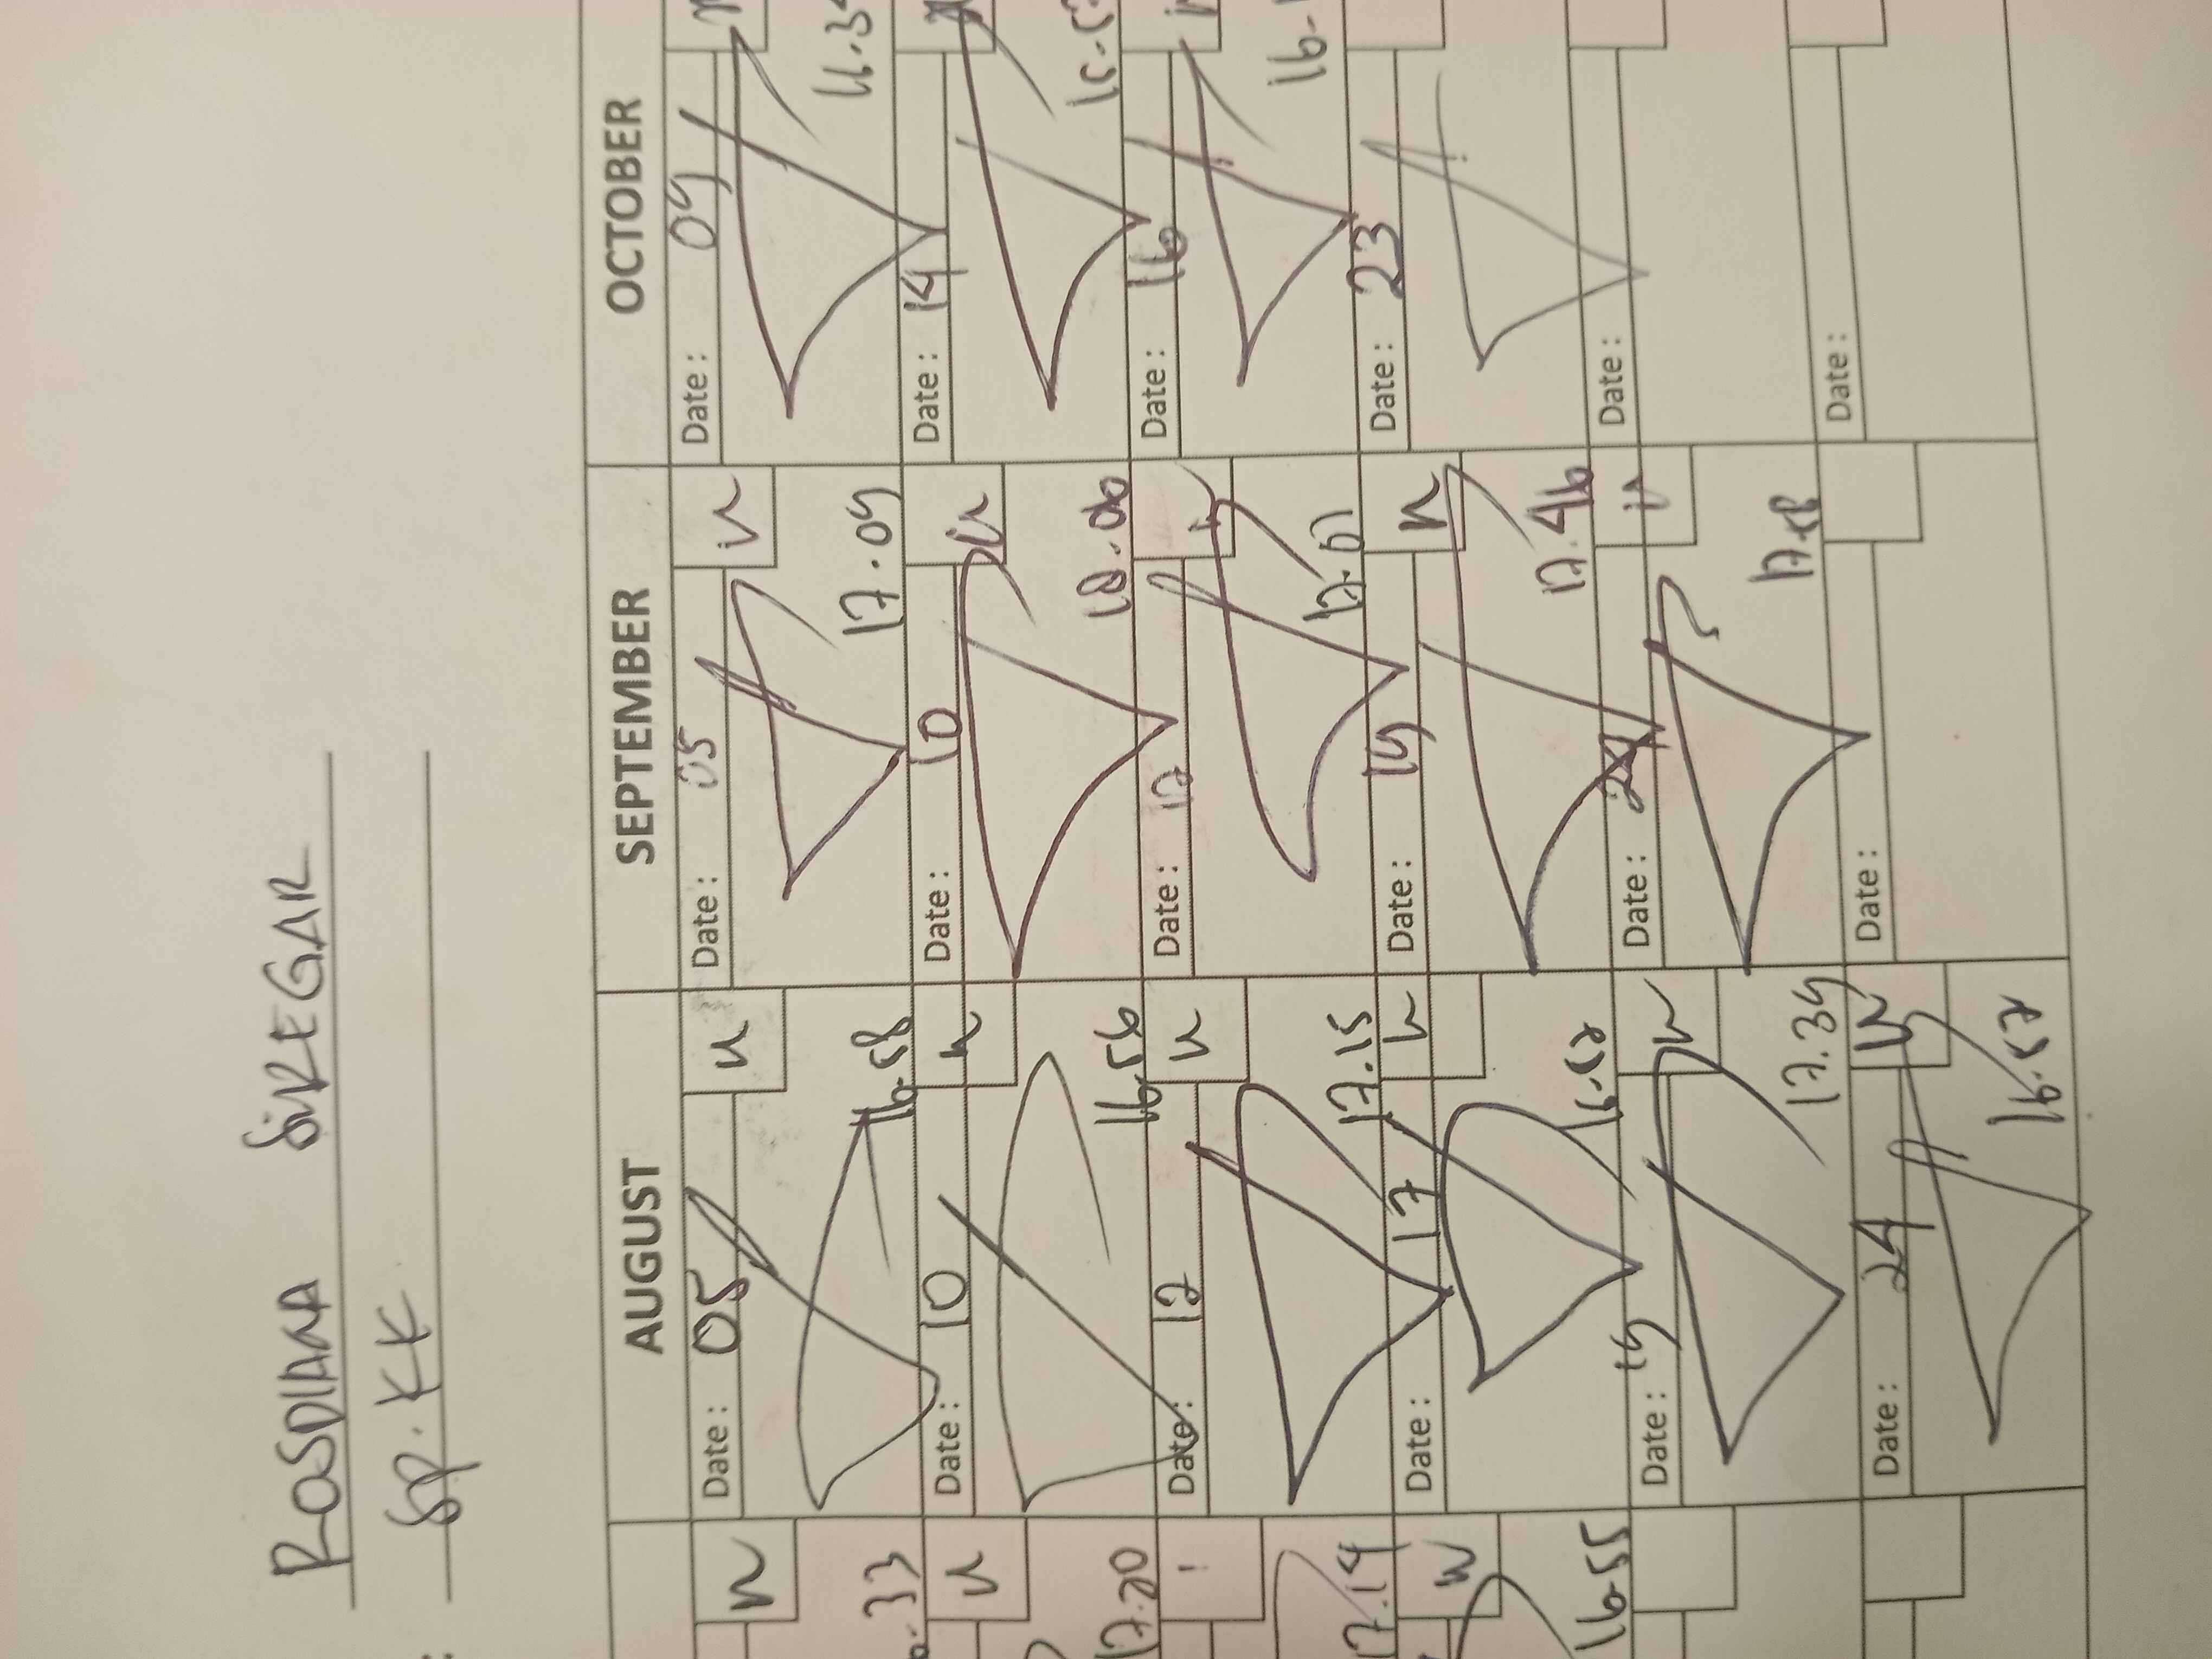 ROSDIANA SIREGAR
SP. KK
AUGUST SEPTEMBER OCTOBER
Date: 05 Date: 05 Date: 09
.33 16.58 17.09
Date: 10 Date: 10 Date: 14
17.20 16.56 18.00
Date: 12 Date: 12 Date: 16
17.14 17.15 17.07
Date: 17 Date: 19 Date: 23
16.55 16.57 17.46
Date: 19 Date: 24 Date:
17.39 17.58
Date: 24 Date: Date:
16.57